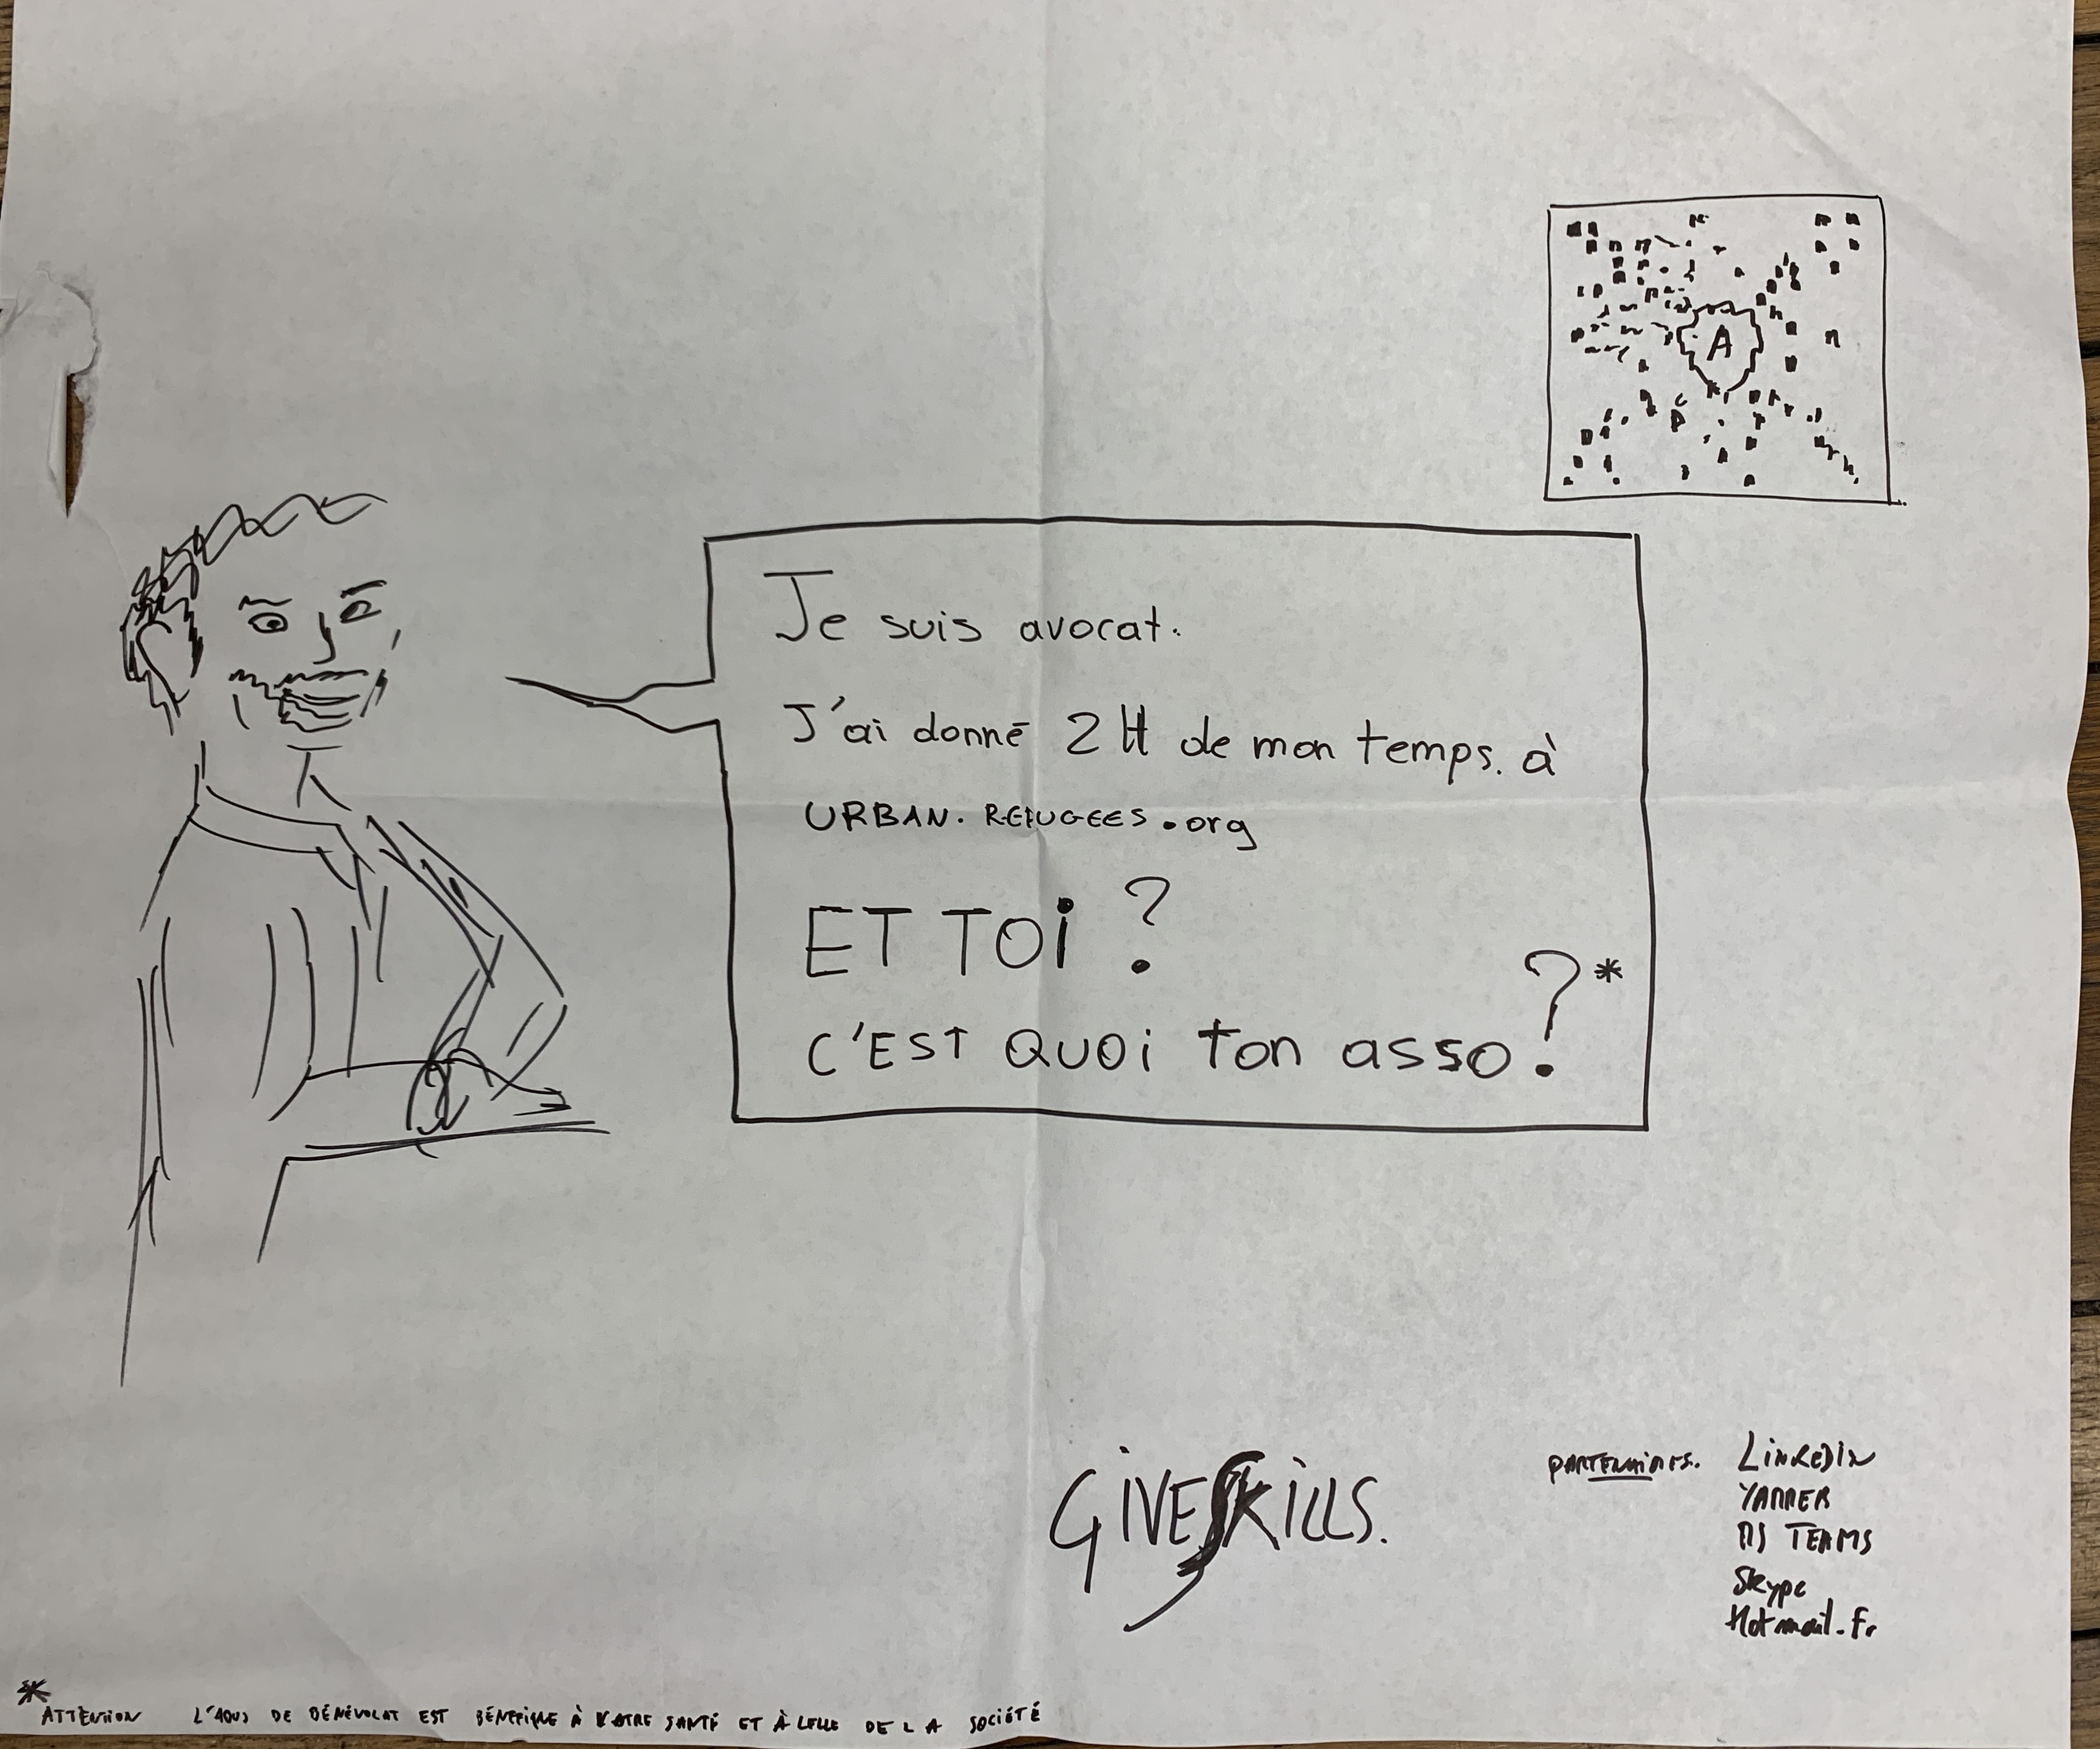 A
Je suis avocat.
J'ai donné 2H de mon temps. à
URBAN. REFUGEES.org
ET TOi ?
C'EST QUOi ton asso ?*
GiVESKiLLS.
PARTENAIRES. LinkedIn
YAMMER
MS TEAMS
Skype
Hotmail.fr
* ATTENTION L'ABUS DE BÉNÉVOLAT EST BÉNÉFIQUE À VOTRE SANTÉ ET À CELLE DE LA SOCIÉTÉ